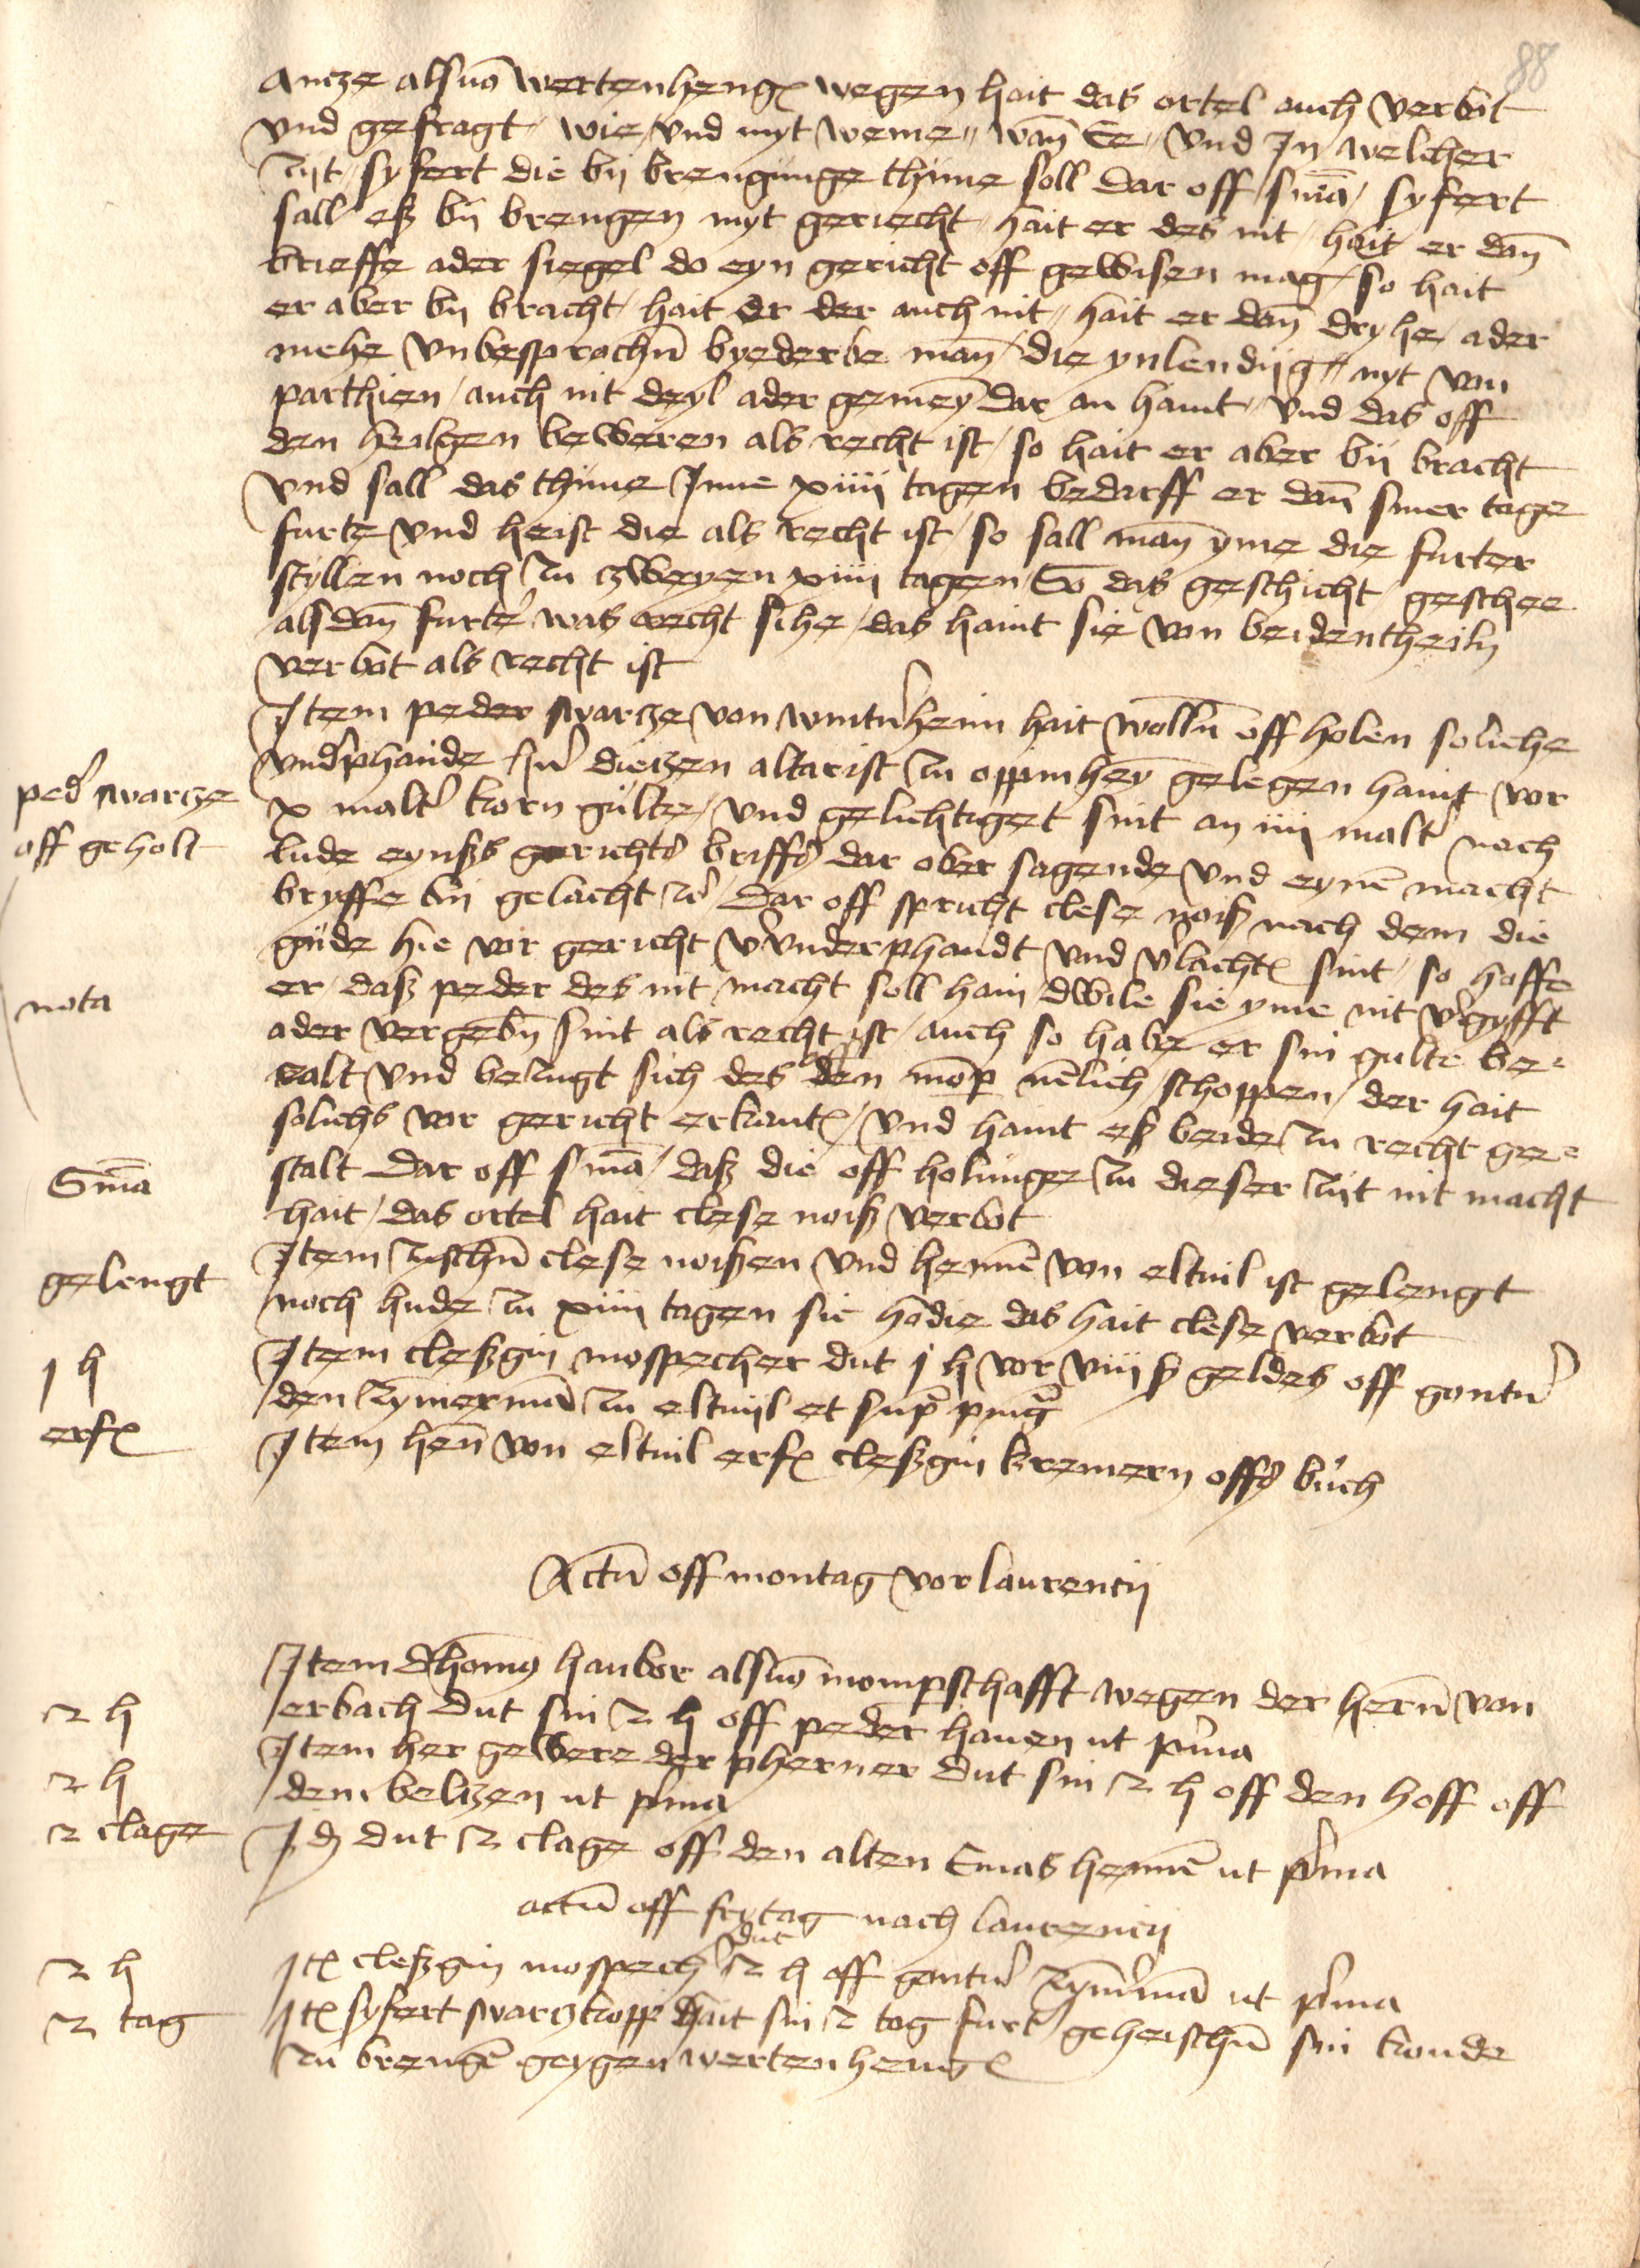 88
Antze als von Wertenhengß wegen hait das ortel auch verbot
vnd gefragt / wie vnd myt weme // wan Ee // vnd Jn welcher
zijt // syfert die bij brengunge thune soll Dar off sniā / syfert
sall eß bij brengen myt geriecht / hait er des nit / hait er dan̄
brieffe ader siegel do eyn gericht off gewisen mag / so hait
er aber bij bracht / hait er der auch nit // hait er dan̄ dryhe ader
mehe vnbesprochn̄ byederbe man̄ die ynlendijg // nyt von
parthien / auch nit deyl ader gemeyn̄ dar an haint // vnd das off
den heilgen beweren als recht ist / so hait er aber bij bracht
vnd sall das thune Jnne xiiii tagen bedarff er dan̄ siner tage
furte vnd heist die als recht ist / so sall man̄ yme die furter
stillen noch zu zweyen xiiii tagen / So das geschicht / geschee
als dan̄ furter was recht sihe / das haint sie von beidentheiln
verbot als recht ist
Jtem peder swarcze von wintr̄heim hait wolln̄ off holen soliche
vnd'phande hr̄ dieczen altarist zu oppinhey̅ gelegen haint vor
ped' swarcze
off geholt
x malt' korn gulte / vnd geluchtiget sint an iiii malt' noch
lude eynßs gerichts briffs dar ober sagende vnd eyne̅ macht
bryffe bij gelacht ꝛc̄ / Dar off spricht clese noiß nach dem die
gude hie vor gericht v'vnderphandt vnd v'lacht sint / so hoffe
nota
er / daß peder des nit macht soll hain / dwile sie yme nit v'gyfft
ader vergebn̄ sint als recht ist / auch so habe er sin gulte be=
zalt vnd bezugt sich des den mōp̄ ne̅lich schoppen / der hait
solichs vor gericht erkant / vnd haint eß beide zu recht ge=
Sniā
stalt Dar off sniā / daß die off holunge zu dieser zijt nit macht
hait / das ortel hait clese noiß verbot
gelengt
Jtem zuschn̄ clese noißen vnd henne̅ von eltuil ist gelengt
noch hude zu xiiii tagen sie hōdie das hait clese verbot
j h
Jtem cleßgin mospecher dut j h vor viii ß geldes off gontr̄
den zym̅erma̅ zu eltuijl et sup̄ pīng̅
erfꝫ
Jtem hen̄ von eltuil erfꝫ cleßgin kremern offs buch
Actū off montag vor laurencij
Jtem Thoing haubor als von mompschafft wegen der hern̄ von
ꝛ h
erbach Dut sin ꝛ h off peder hauen ut p'ma
ꝛ h
Jtem her gewere der pherner Dut sin ꝛ h off den hoff off
dem belczen ut p'ma
ꝛ clage
Jd̄ dut ꝛ clage off den alten Emas henne̅ ut p'ma
actū off frytag nach laurencij
ꝛ h
Jtꝫ cleßgin mospech' dut ꝛ h off gontr̄ zym̄ma̅ ut p'ma
ꝛ tag
Jtꝫ syfert swarczkopp hait sin ꝛ tag furt' geheischn̄ sin konde
zu brenge̅ geygen wertenhengß